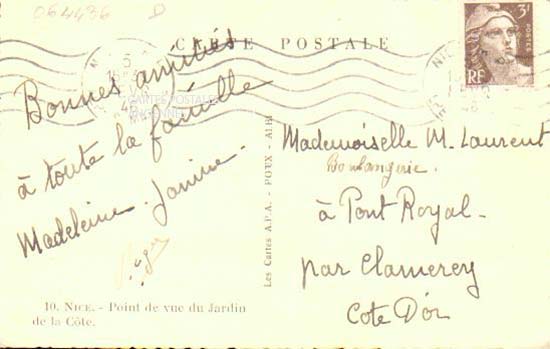 064436
CARTE POSTALE
3F
RF
NICE
CARTES POSTALES
ANCIENNES
Bonnes amitiés
à toute la famille
Madeleine. Janine.
Roger
10. NICE. - Point de vue du Jardin
de la Côte.
Les Cartes A.P.A. - POUX - ALBI
Mademoiselle M. Laurent
Boulangerie.
à Pont Royal-
par Clamerey
Cote D'or